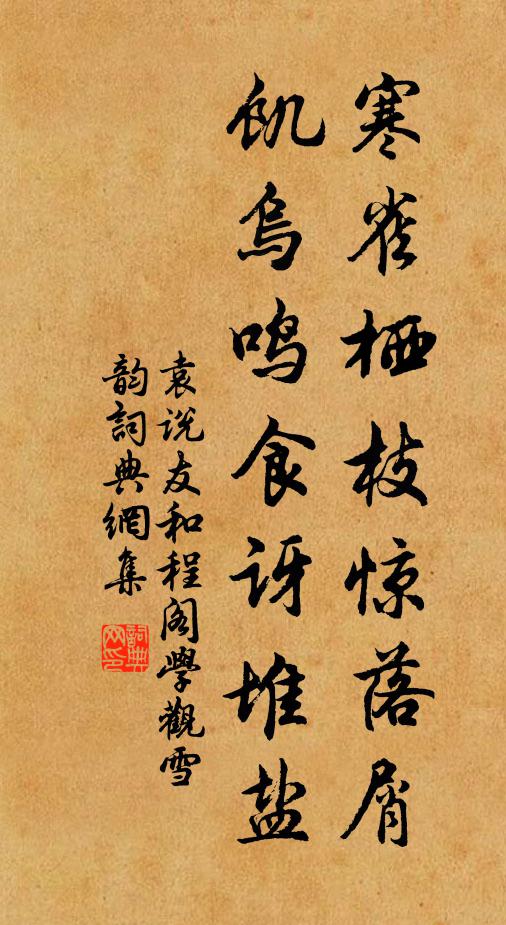 寒雀栖枝惊落屑
饥乌鸣食讶堆盐
袁说友和程阁学观雪
韵词典网集
词典
网印